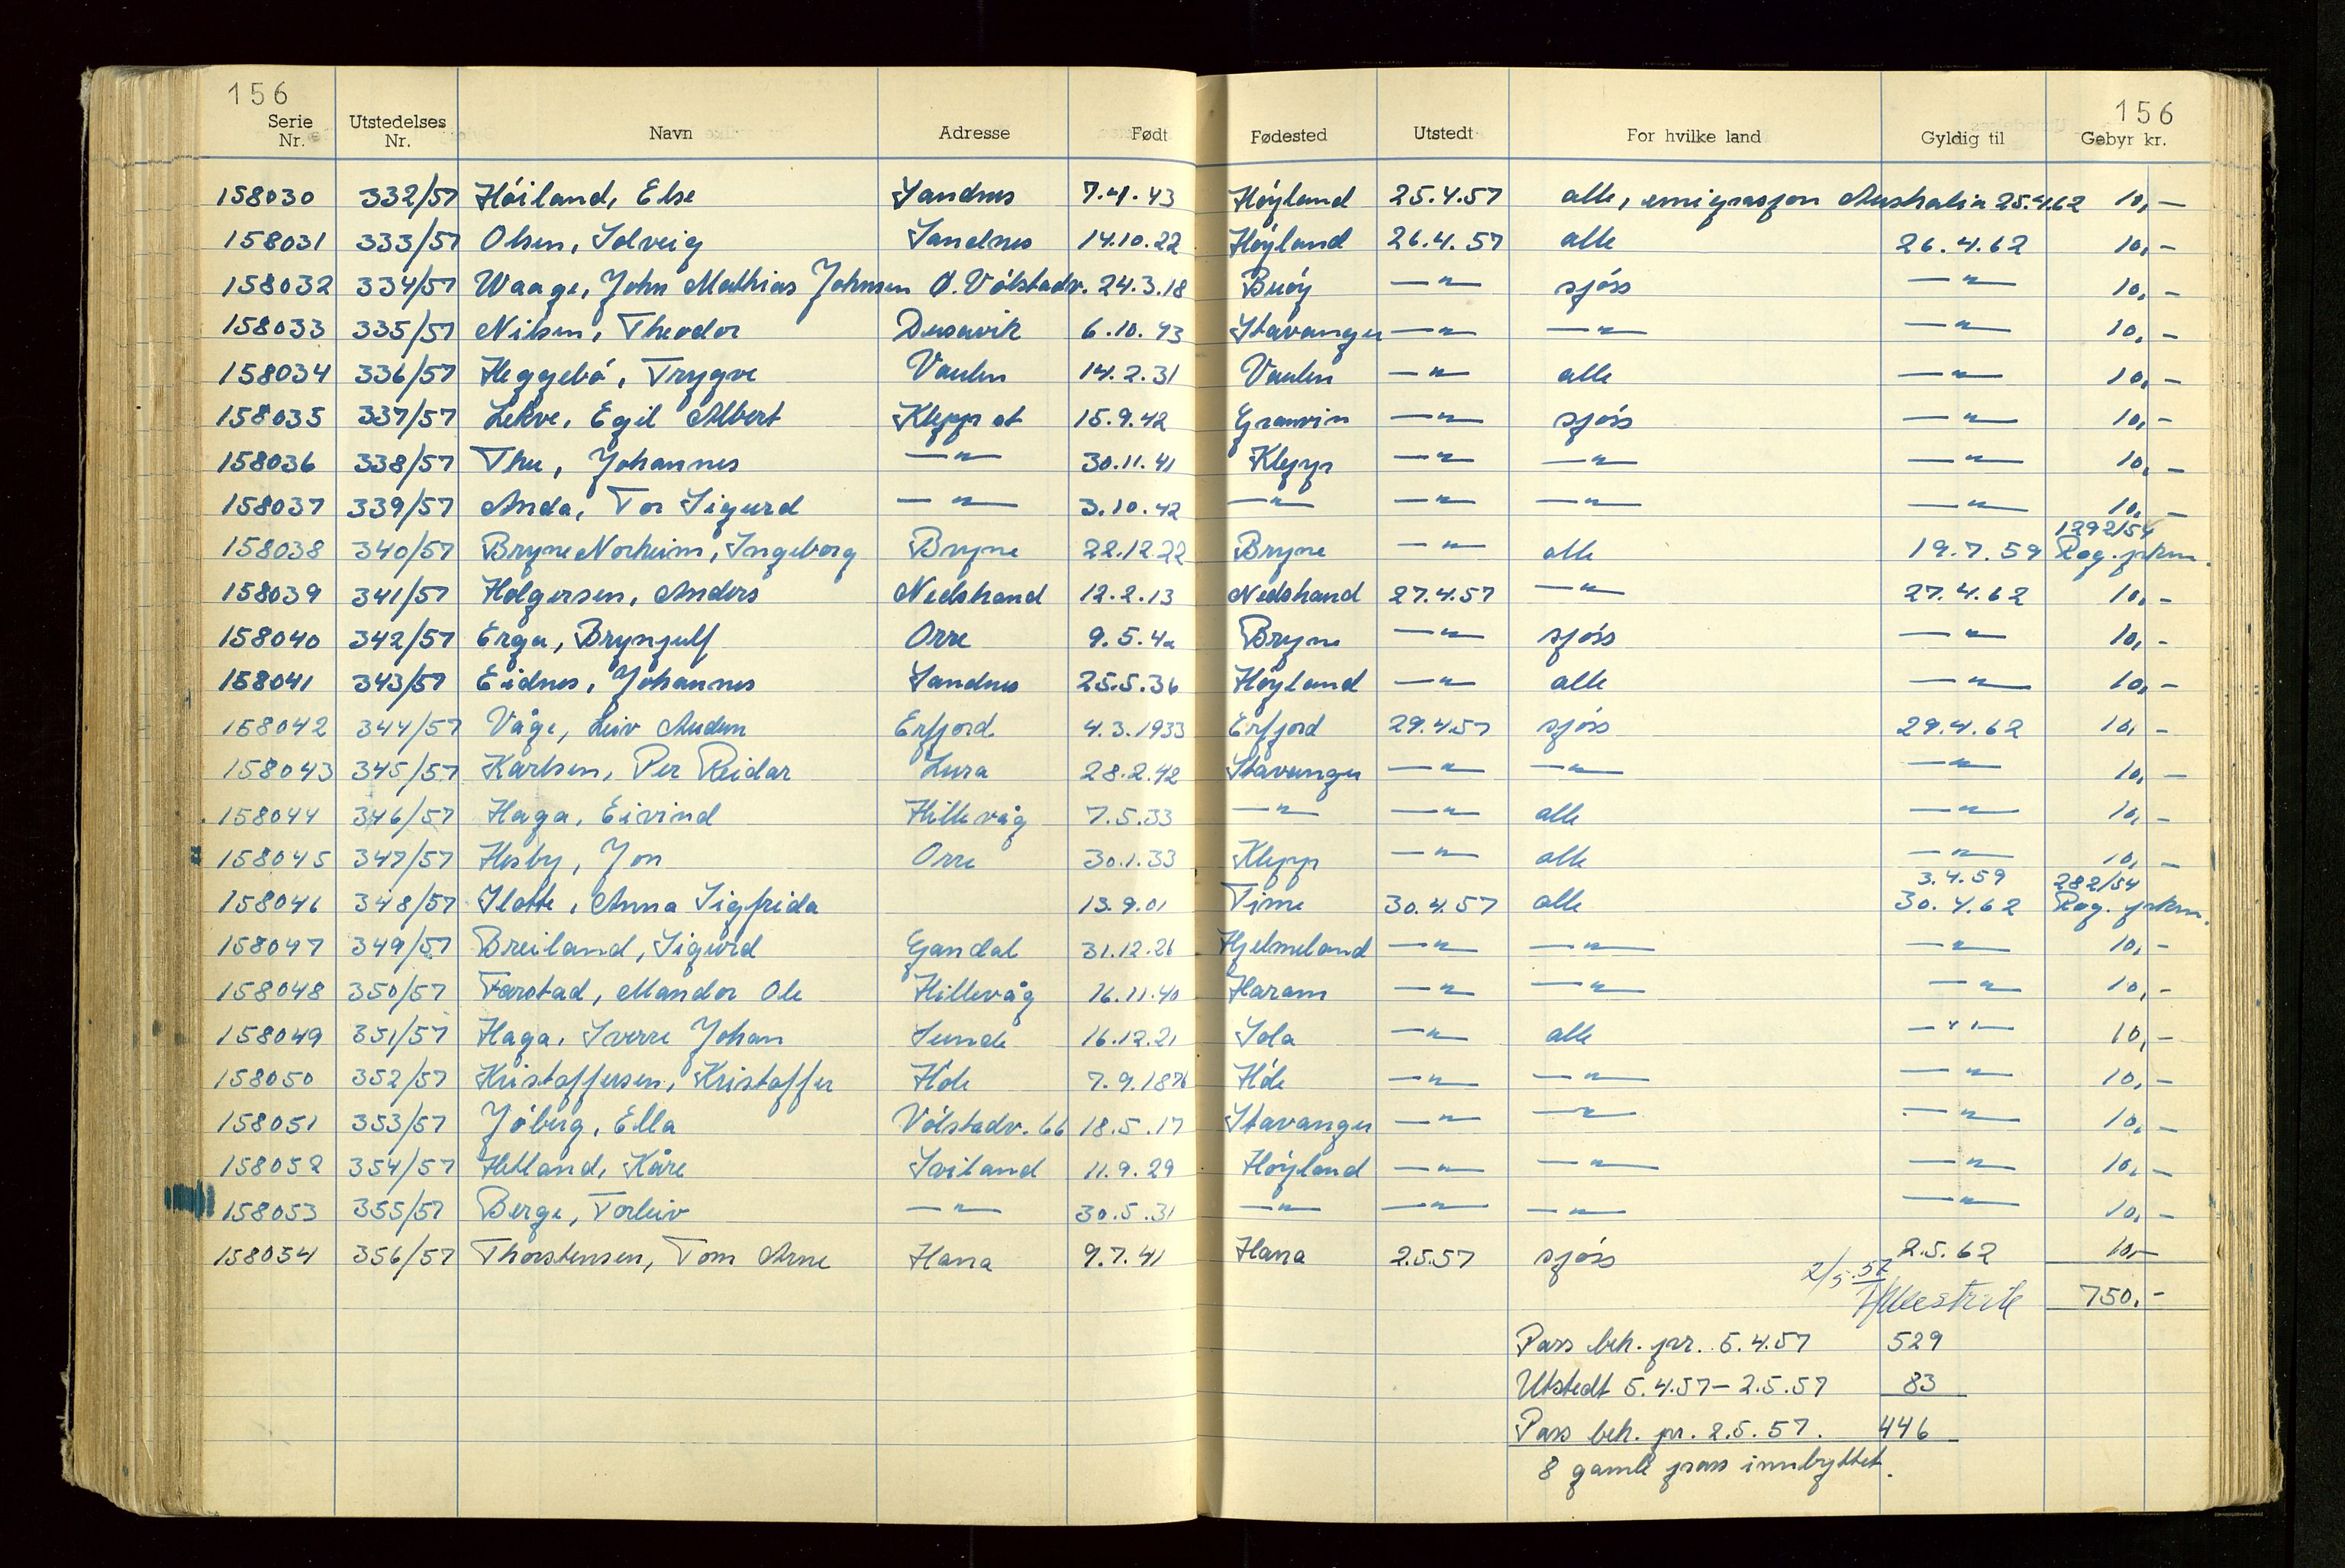 156
156
Serie Nr. Utstedelses Nr. Navn Adresse Født Fødested Utstedt For hvilke land Gyldig til Gebyr kr.
158030 332/57 Höiland, Else Sandnes 7.4.43 Höyland 25.4.57 alle, emigrasjon Australia 25.4.62 10,-
158031 333/57 Olsen, Solveig Sandnes 14.10.22 Höyland 26.4.57 alle 26.4.62 10,-
158032 334/57 Waage, John Mathias Johnsen Ø. Völstadv. 24.3.18 Buöy —"— sjöis —"— 10,-
158033 335/57 Nilsen, Theodor Dusavik 6.10.43 Stavanger —"— —"— —"— 10,-
158034 336/57 Heggebö, Trygve Vaulen 14.2.31 Vaulen —"— alle —"— 10,-
158035 337/57 Lekve, Egil Albert Klepp st 15.9.42 Granvin —"— sjöis —"— 10,-
158036 338/57 Thu, Johannes —"— 30.11.41 Klepp —"— —"— —"— 10,-
158037 339/57 Anda, Tor Sigurd —"— 3.10.42 —"— —"— —"— —"— 10,-
158038 340/57 Bryne Norheim, Ingeborg Bryne 22.12.22 Bryne —"— alle 19.7.59 1292/54 Rog. pkm.
158039 341/57 Holgersen, Anders Nedstrand 12.2.13 Nedstrand 27.4.57 —"— 27.4.62 10,-
158040 342/57 Erga, Brynjulf Orre 9.5.4 Bryne —"— sjöis —"— 10,-
158041 343/57 Eidnes, Johannes Sandnes 25.5.36 Höyland —"— alle —"— 10,-
158042 344/57 Våge, Leiv Audun Erfjord 4.3.1933 Erfjord 29.4.57 sjöis 29.4.62 10,-
158043 345/57 Karlsen, Per Reidar Lura 28.2.42 Stavanger —"— —"— —"— 10,-
158044 346/57 Haga, Eivind Hillevåg 7.5.33 —"— —"— alle —"— 10,-
158045 347/57 Hesby, Jon Orre 30.1.33 Klepp —"— alle —"— 10,-
158046 348/57 Slotte, Anna Sigfrida 13.9.01 Time 30.4.57 alle 3.4.59 30.4.62 282/54 Rog. pkm.
158047 349/57 Breiland, Sigurd Gandal 31.12.26 Hjelmeland —"— —"— —"— 10,-
158048 350/57 Farstad, Mandor Ole Hillevåg 16.11.40 Haram —"— —"— —"— 10,-
158049 351/57 Haga, Sverre Johan Sunde 16.12.21 Sola —"— alle —"— 10,-
158050 352/57 Kristoffersen, Kristoffer Höle 7.9.1876 Höle —"— —"— —"— 10,-
158051 353/57 Jöberg, Ella Völstadv. 66 18.5.17 Stavanger —"— —"— —"— 10,-
158052 354/57 Hetland, Kåre Sviland 11.9.29 Höyland —"— —"— —"— 10,-
158053 355/57 Berge, Torleiv —"— 30.5.31 —"— —"— —"— —"— 10,-
158054 356/57 Thorstensen, Tom Arne Hana 9.7.41 Hana 2.5.57 sjöis 2.5.62 10,-
2/5.57 750,-
Pass beh. pr. 5.4.57 529
Utstedt 5.4.57 - 2.5.57 83
Pass beh. pr. 2.5.57. 446
8 gamle pass innbyttet.